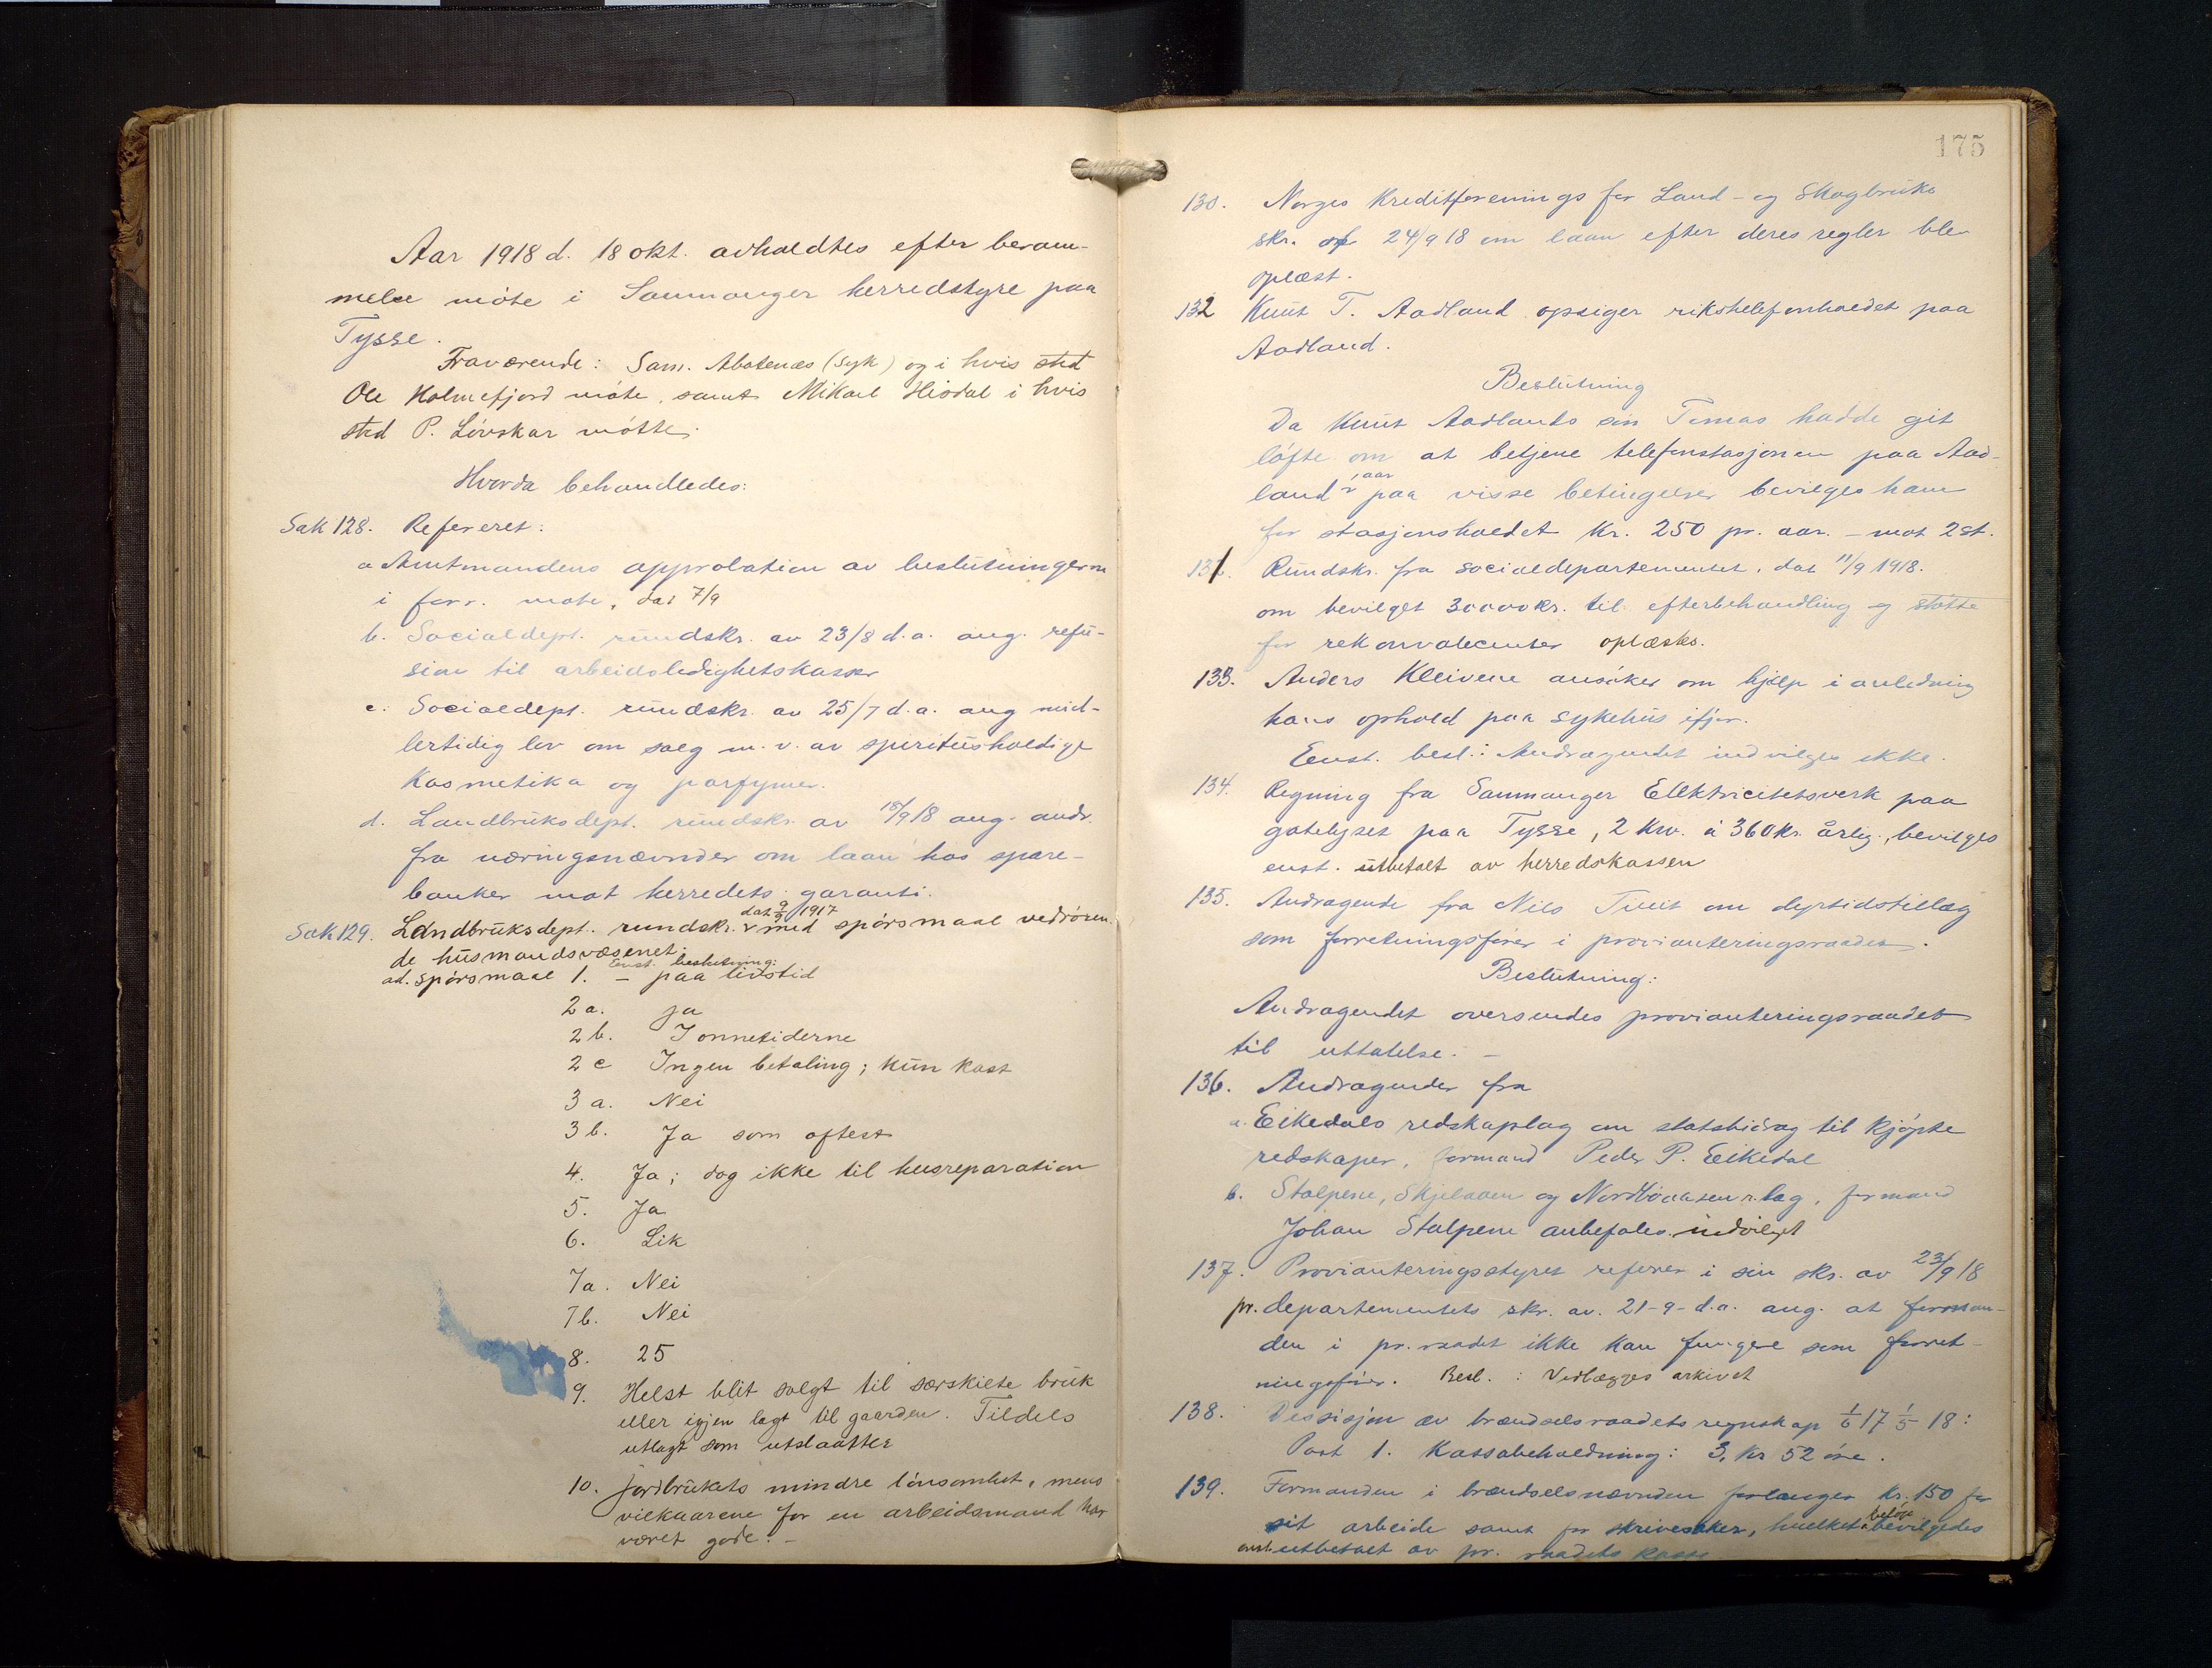 Aar 1918 d. 18 okt. avholdtes efter beram-
melse møte i Samnanger herredstyre paa
Tysse.
Fraværende: Sam. Abotenæs (syk) og i hvis sted
Ole Holmefjord møte, samt Mikael Hisdal i hvis
sted P. Løvskar møtte.
Hvorda behandledes:
Sak 128. Referert:
a Amtmandens approbation av beslutningerne
i forr. møte, dat 7/9
b. Socialdept. rundskr. av 23/8 d.a. ang. refu-
sion til arbeidsledighetskasser
c. Socialdept. rundskr. av 25/7 d.a. ang mid-
lertidig lov om salg m.v. av spiritusholdige
Kosmetika og parfymer.
d. Landbruksdept. rundskr. av 18/9 18 ang. andr.
fra næringsnævnder om laan hos spare-
banker mot herredets garanti.
dat 9/9 1917
Sak 129. Landbruksdept. rundskr. med spørsmaal vedrøren-
de husmandsvæsenet.
Enst. beslutning:
ad. spørsmaal 1. – paa livstid
2a. ja
2b. I onnetiderne
2c Ingen betaling; kun kost
3a. Nei
3b. Ja som oftest
4. Ja; dog ikke til husreparation
5. Ja
6. Lik
7a. Nei
7b. Nei
8. 25
9. Helst blit solgt til særskilte bruk
eller igjen lagt til gaarden. Tildels
utlagt som utslaatter
10. Jordbrukets mindre lønsomhet, mens
vilkaarene for en arbeidsmand har
været gode. –
175
130. Norges Kreditforenings for Land- og Skogbruks
skr. af 24/9 18 om laan efter deres regler ble
oplæst.
132 Knut T. Aadland opsiger rikstelefonholdet paa
Aadland.
Beslutning
Da Knut Aadlands søn Tomas hadde git
løfte om at betjene telefonstasjonen paa Aad-
1 aar
land paa visse betingelser bevilges ham
for stasjonsholdet Kr. 250 pr. aar. – mot 2 st.
131. Rundskr. fra socialdepartementet, dat 11/9 1918.
om bevilget 30000 kr. til efterbehandling og støtte
for rekonvalecenter oplæstes.
133. Anders Kleivene ansøker om hjælp i anledning
hans ophold paa sykehus ifjor.
Enst. besl.: Andragendet indvilges ikke.
134. Regning fra Samnanger Ellektricitetsverk paa
gatelyset paa Tysse, 2 Kw. á 360 kr. årlig, bevilges
enst. utbetalt av herredskassen
135. Andragende fra Nils Tveit om dyrtidstillæg
som forretningsfører i provianteringsraadet.
Beslutning:
Andragendet oversendes provianteringsraadet
til uttalelse. –
136. Andragender fra
a. Eikedals redskaplag om statsbidrag til kjøpte
redskaper, formand Peder P. Eikedal
b. Stølpene, Skjelaaen og Nordbøaasen r. lag, formand
Johan Stølpene anbefales indvilget
137. Provianteringsstyret referer i sin skr. av 23/9 18
pr. departementets skr. av. 21-9- d.a. ang. at forman-
den i pr. raadet ikke kan fungere som forret-
ningsfører. Besl.: Vedlægges arkivet
138. Dessisjon av brændselsraadets regnskap 1/6 17 1/5 18:
Post 1. Kassabeholdning: 3, kr 52 øre.
139. Formanden i brændselsnævnden forlanger kr. 150 for
beløp
sit arbeide samt for skrivesaker, hvilket bevilgedes
enst utbetalt av pr. raadets kasse